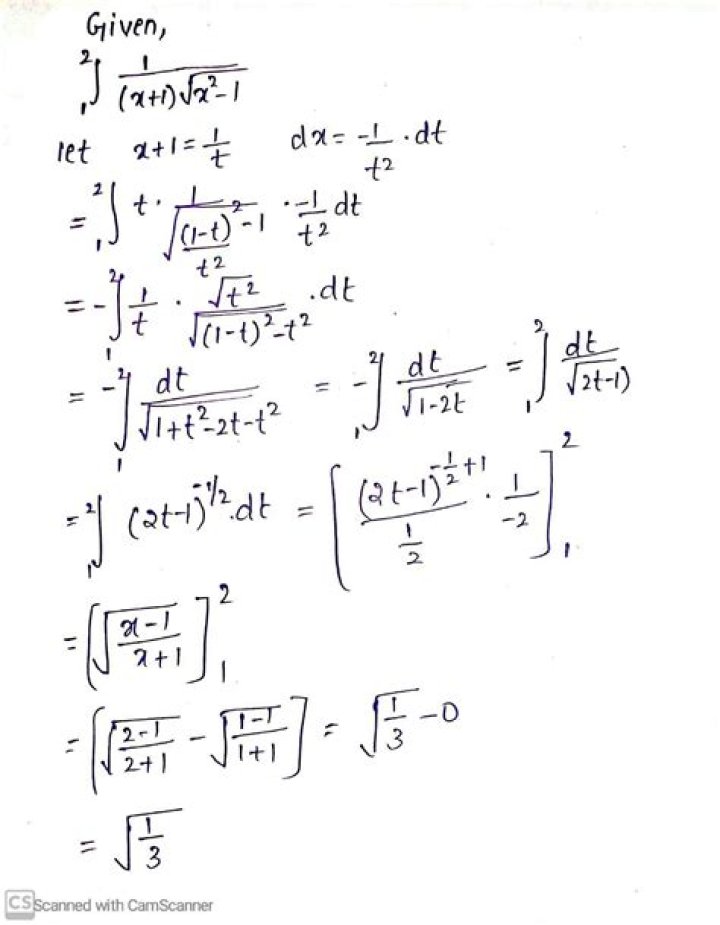 Given,
₁²∫ 1/((x+1)√(x²-1))
let x+1 = 1/t dx = -1/t² · dt
= ₁²∫ t · 1/√((1-t)²/t² - 1) · -1/t² dt
= - ₁²∫ 1/t · √t²/√((1-t)²-t²) · dt
= - ₁²∫ dt/√(1+t²-2t-t²) = - ₁²∫ dt/√(1-2t) = ₁²∫ dt/√(2t-1)
= ₁²∫ (2t-1)^(-1/2) · dt = [ (2t-1)^(-1/2+1)/(1/2) · 1/-2 ]₁²
= [√((x-1)/(x+1))]₁²
= [√((2-1)/(2+1)) - √((1-1)/(1+1))] = √(1/3) - 0
= √(1/3)
CS Scanned with CamScanner